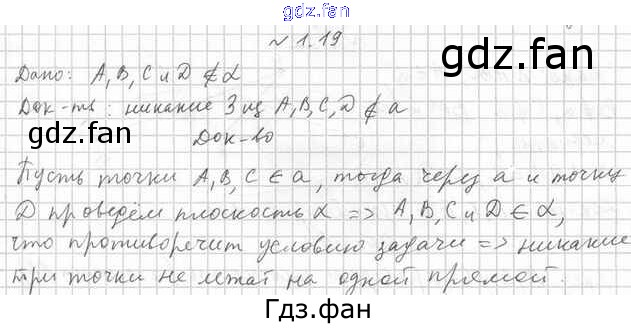 gdz.fan
№ 1.19
gdz.fan
Дано: A, B, C и D ∉ α
Док-ть: никакие 3 из A, B, C, D ∉ a
gdz.fan
Док-во
Пусть точки A, B, C ∈ a, тогда через a и точку
D проведём плоскость α => A, B, C и D ∈ α,
что противоречит условию задачи => никакие
три точки не лежат на одной прямой.
Гдз.фан